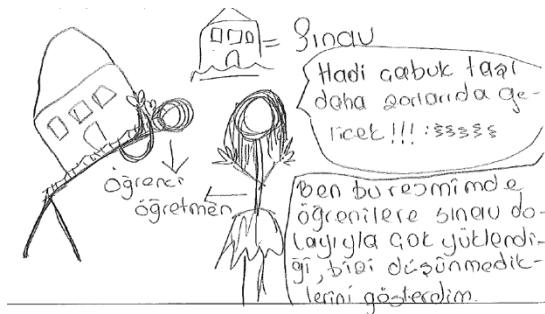 = Sınav
Hadi çabuk taşı
daha zorlarıda ge-
licek!!! :§§§§§
öğrenci
öğretmen
Ben bu resmimde
öğrenilere sınav do-
layıyla çok yüklendi-
ği, bizi düşünmedik-
lerini gösterdim.